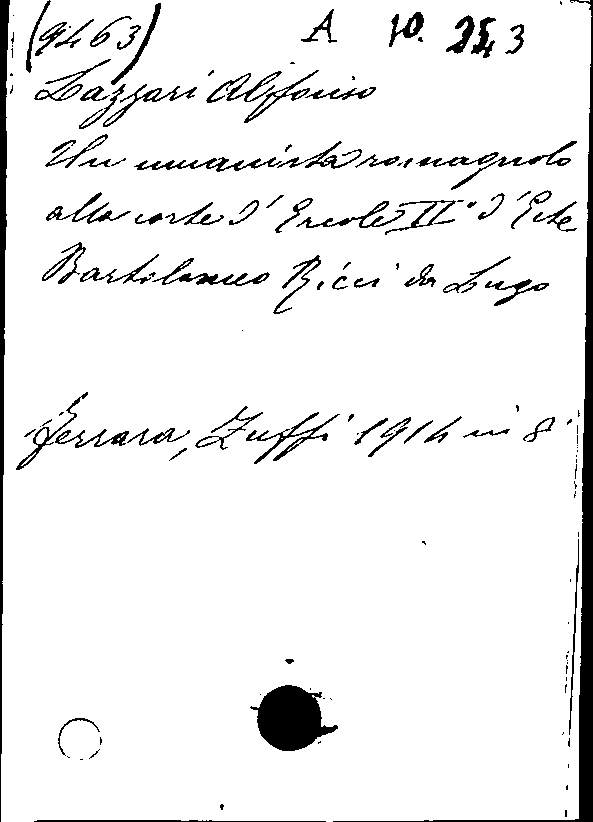 (9463) A 10. 25.43
Lazzari Alfonso
Un umanista romagnolo
alla corte d' Ercole II° d' Este
Bartolomeo Ricci da Lugo
Ferrara, Zuffi 1914 in 8°